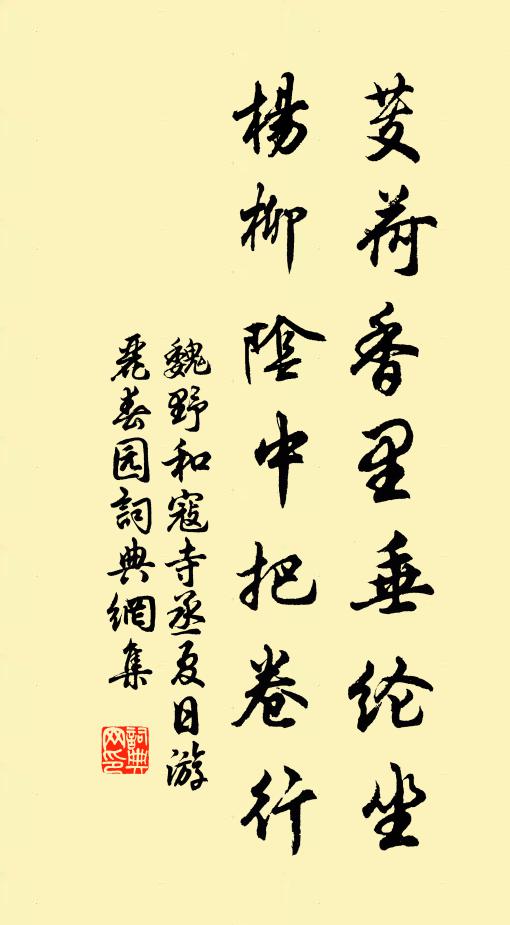 芰荷香里垂纶坐
楊柳陰中把卷行
魏野和寇寺丞夏日游
麗春园詞典網集
詞典
网印